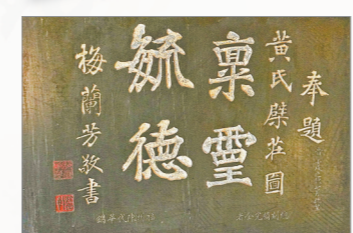 奉題
黄氏檗莊圖
稟靈
毓德
梅蘭芳敬書